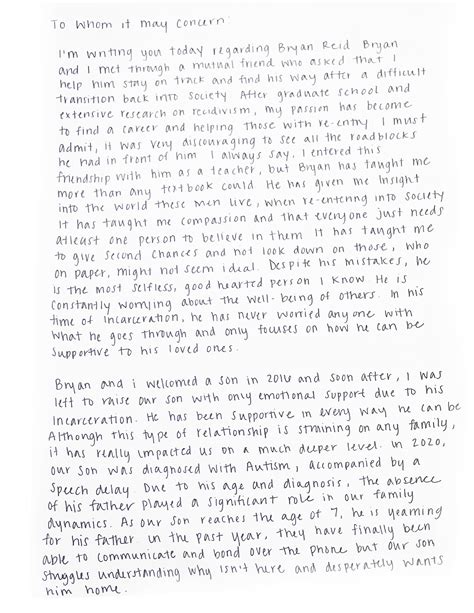 To Whom it may concern:
I'm writing you today regarding Bryan Reid Bryan
and I met through a mutual friend who asked that I
help him stay on track and find his way after a difficult
transition back into society After graduate school and
extensive research on recidivism, my passion has become
to find a career and helping those with re-entry I must
admit, it was very discouraging to see all the roadblocks
he had in front of him I always say, I entered this
friendship with him as a teacher, but Bryan has taught me
more than any textbook could He has given me insight
into the world these men live, when re-entering into society
It has taught me compassion and that everyone just needs
atleast one person to believe in them It has taught me
to give second chances and not look down on those, who
on paper, might not seem ideal. Despite his mistakes, he
is the most selfless, good hearted person I know He is
constantly worrying about the well-being of others. In his
time of incarceration, he has never worried anyone with
what he goes through and only focuses on how he can be
supportive to his loved ones.
Bryan and i welcomed a son in 2016 and soon after, I was
left to raise our son with only emotional support due to his
incarceration. He has been supportive in every way he can be
Although this type of relationship is straining on any family,
it has really impacted us on a much deeper level. In 2020,
our son was diagnosed with Autism, accompanied by a
speech delay. Due to his age and diagnosis, the absence
of his father played a significant role in our family
dynamics. As our son reaches the age of 7, he is yearning
for his father in the past year, they have finally been
able to communicate and bond over the phone but our son
struggles understanding why isn't here and desperately wants
him home.